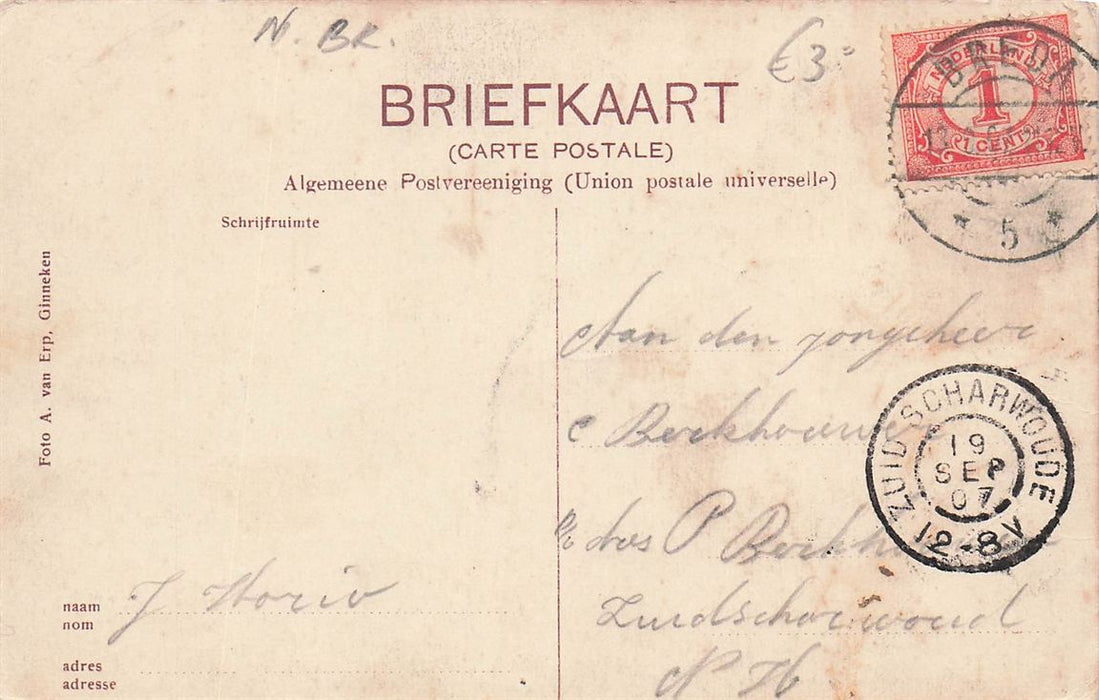 N. BR.
€3=
BRIEFKAART
(CARTE POSTALE)
Algemeene Postvereeniging (Union postale universelle)
NEDERLAND
1
1 CENT
BREDA
* 5 *
Schrijfruimte
Foto A. van Erp, Ginneken
Aan den jongeheer
C Berkhouwer
ZUID SCHARWOUDE
19
SEP
07
12-8V
P Berkh
Zuidscharwoud
N H
naam J
nom
adres
adresse